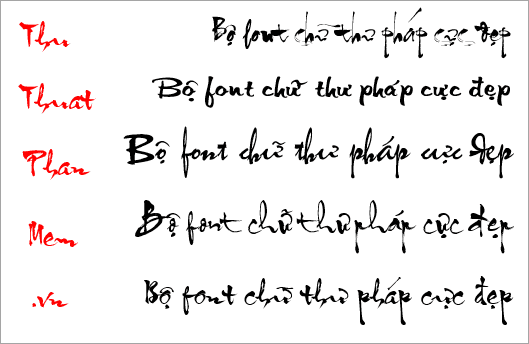 Thu Bộ font chữ thư pháp cực đẹp
Thuat Bộ font chữ thư pháp cực đẹp
Phan Bộ font chữ thư pháp cực đẹp
Mem Bộ font chữ thư pháp cực đẹp
.vn Bộ font chữ thư pháp cực đẹp